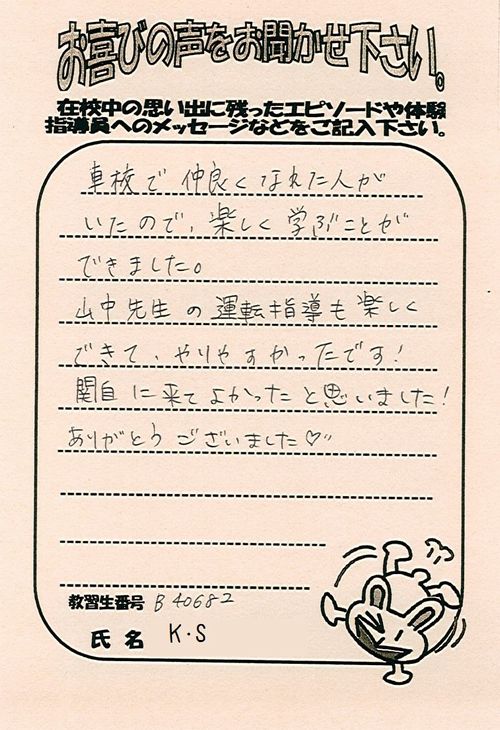 お喜びの声をお聞かせ下さい。
在校中の思い出に残ったエピソードや体験
指導員へのメッセージなどをご記入下さい。
車校で仲良くなれた人が
いたので、楽しく学ぶことが
できました。
山中先生の運転指導も楽しく
できて、やりやすかったです!
関自に来てよかったと思いました!
ありがとうございました♡
教習生番号 B40682
氏名 K・S